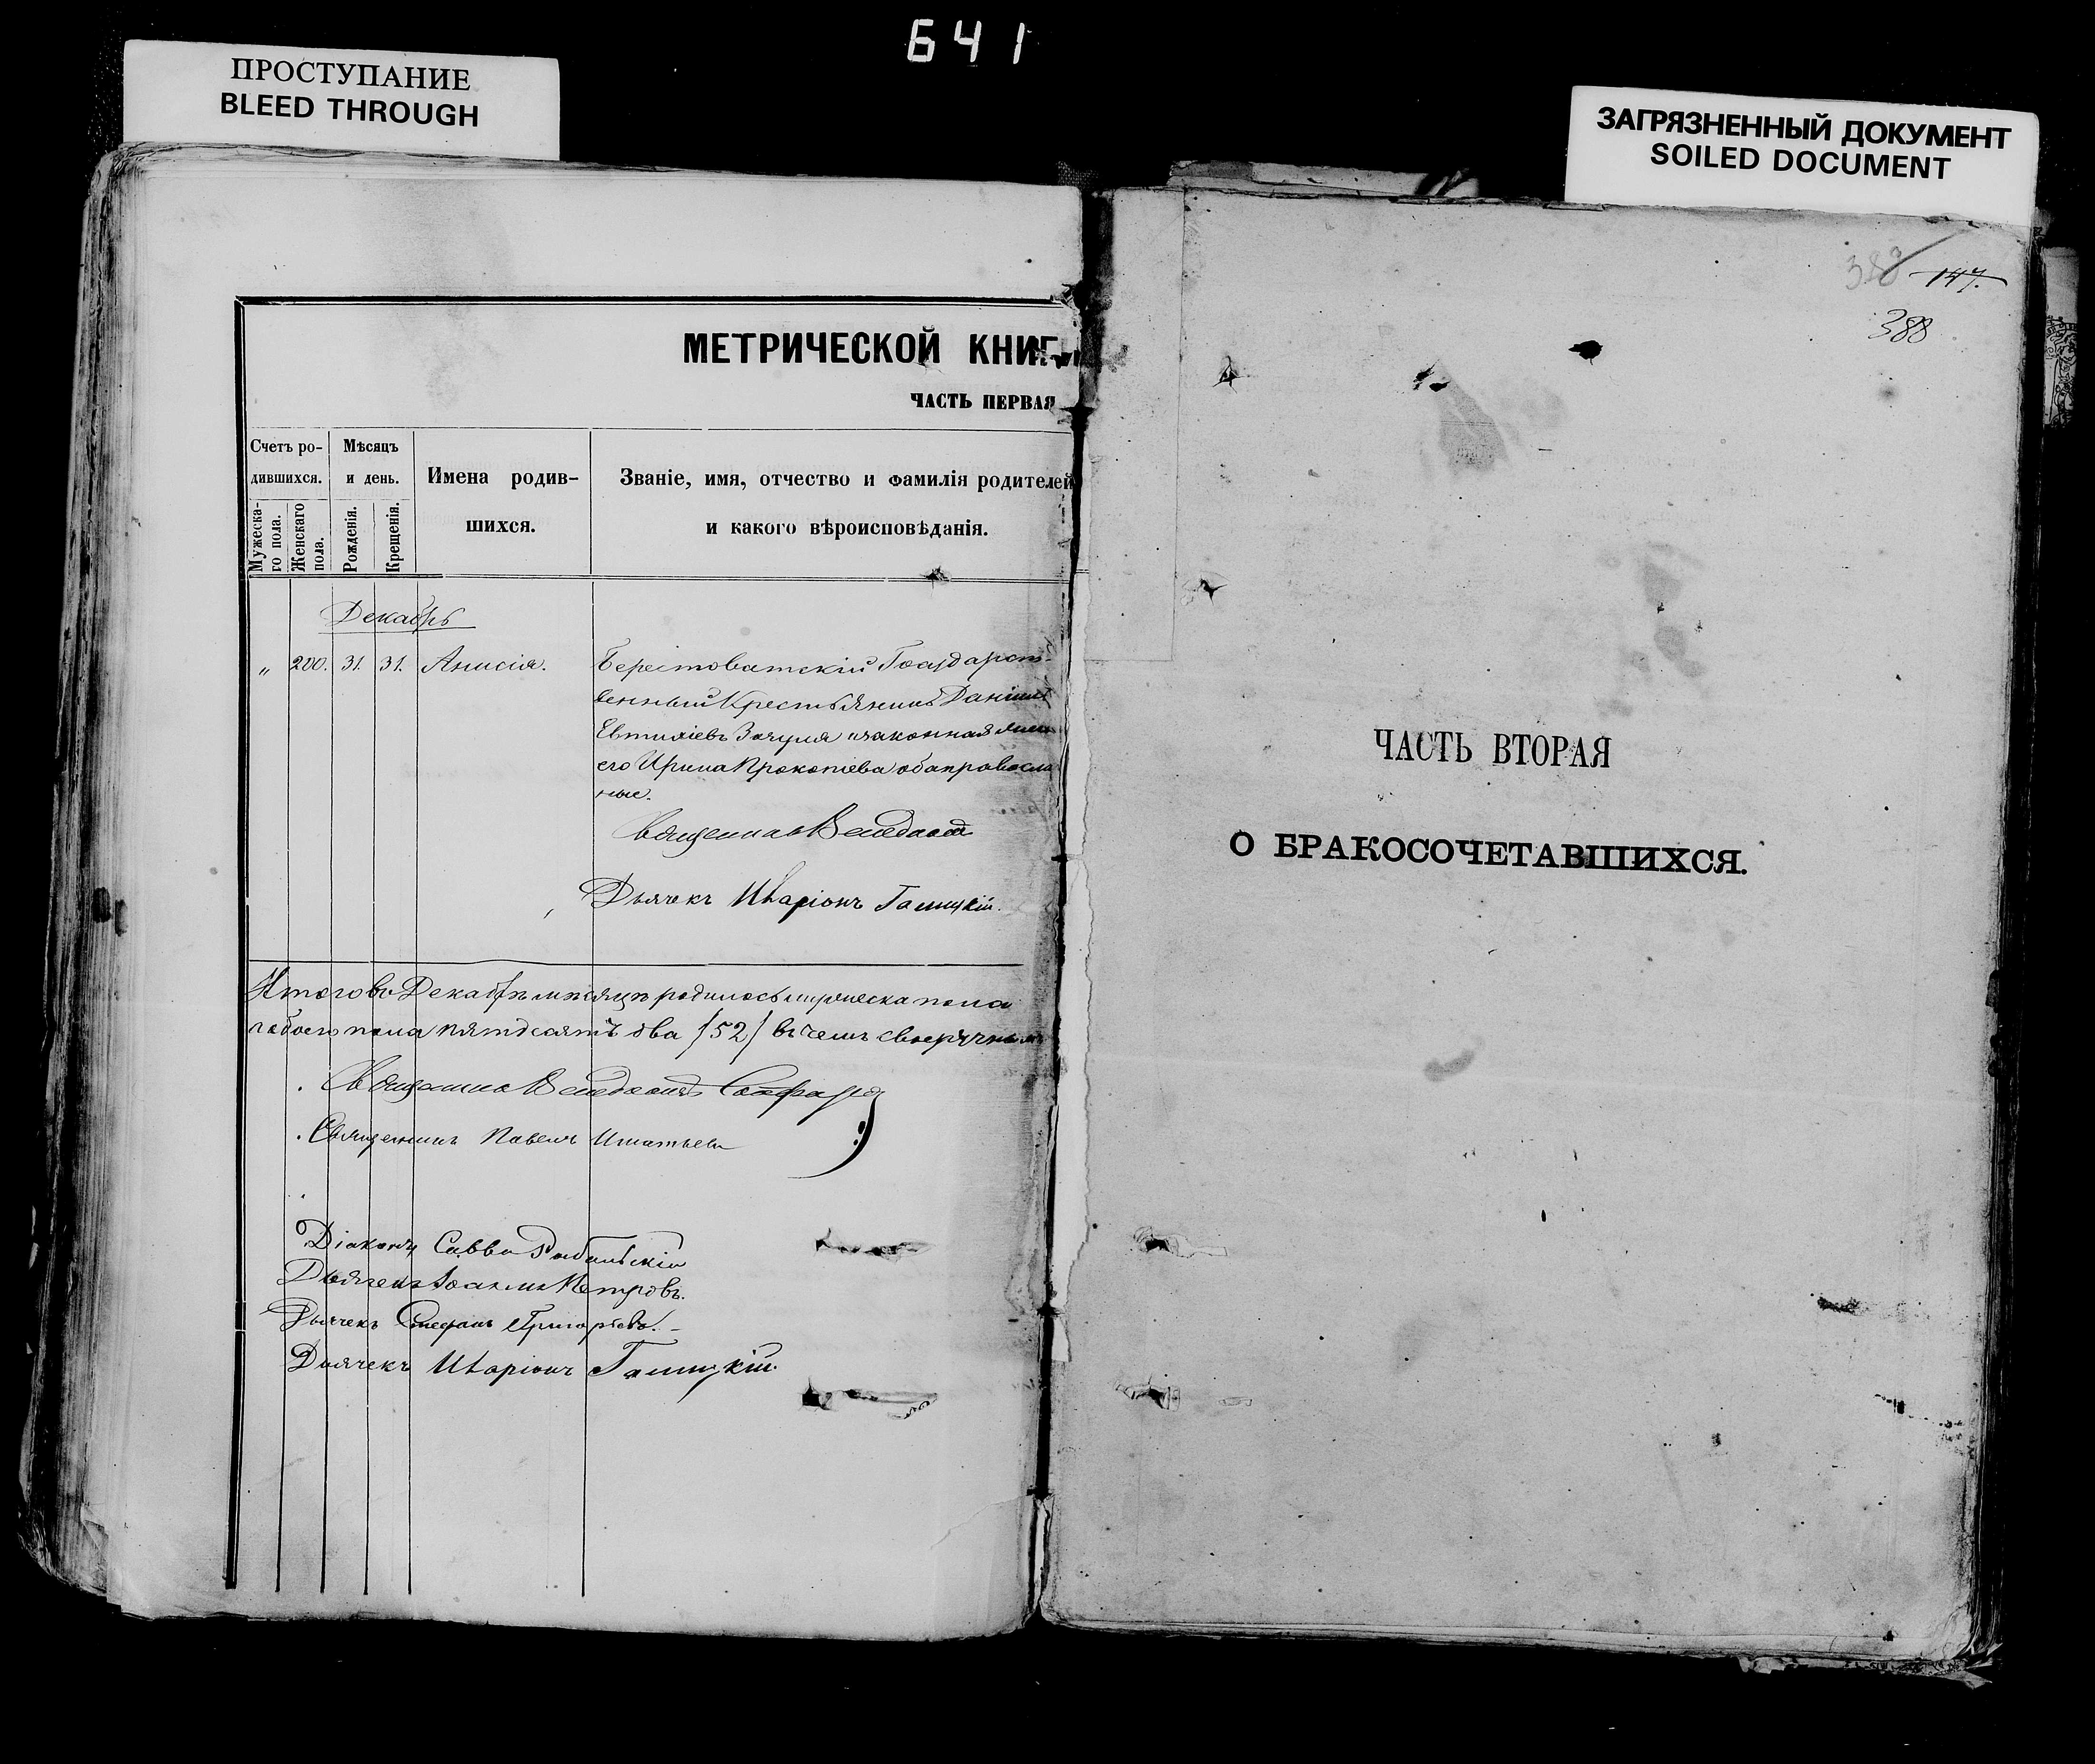 641
ПРОСТУПАНИЕ
BLEED THROUGH
ЗАГРЯЗНЕННЫЙ ДОКУМЕНТ
SOILED DOCUMENT
МЕТРИЧЕСКОЙ КНИГИ
ЧАСТЬ ПЕРВАЯ
Счетъ ро-
дившихся.
Мужеска-
го пола.
Женскаго
пола.
Мѣсяцъ
и день.
Рожденія.
Крещенія.
Имена родив-
шихся.
Званіе, имя, отчество и фамилія родителей
и какого вѣроисповѣданія.
Декабрь
" 200. 31. 31. Анисія. Берестоватскій Государст-
венный Крестьянинъ Даніилъ
Евтихіевъ законная
его Ирина Прокопіева оба православ
ные.
Дьячекъ Иларіонъ Галицкій.
Итого въ Декабрѣ мѣсяцѣ родилось мужеска пола
обоего пола пятдесятъ два /52/ въ чемъ
Священникъ Павелъ Игнатьевъ
Діаконъ Савва
Дьячекъ Іоаннъ Петровъ.
Дьячекъ Стефанъ Григорьевъ.
Дьячекъ Иларіонъ Галицкій.
388 147.
388
ЧАСТЬ ВТОРАЯ
О БРАКОСОЧЕТАВШИХСЯ.